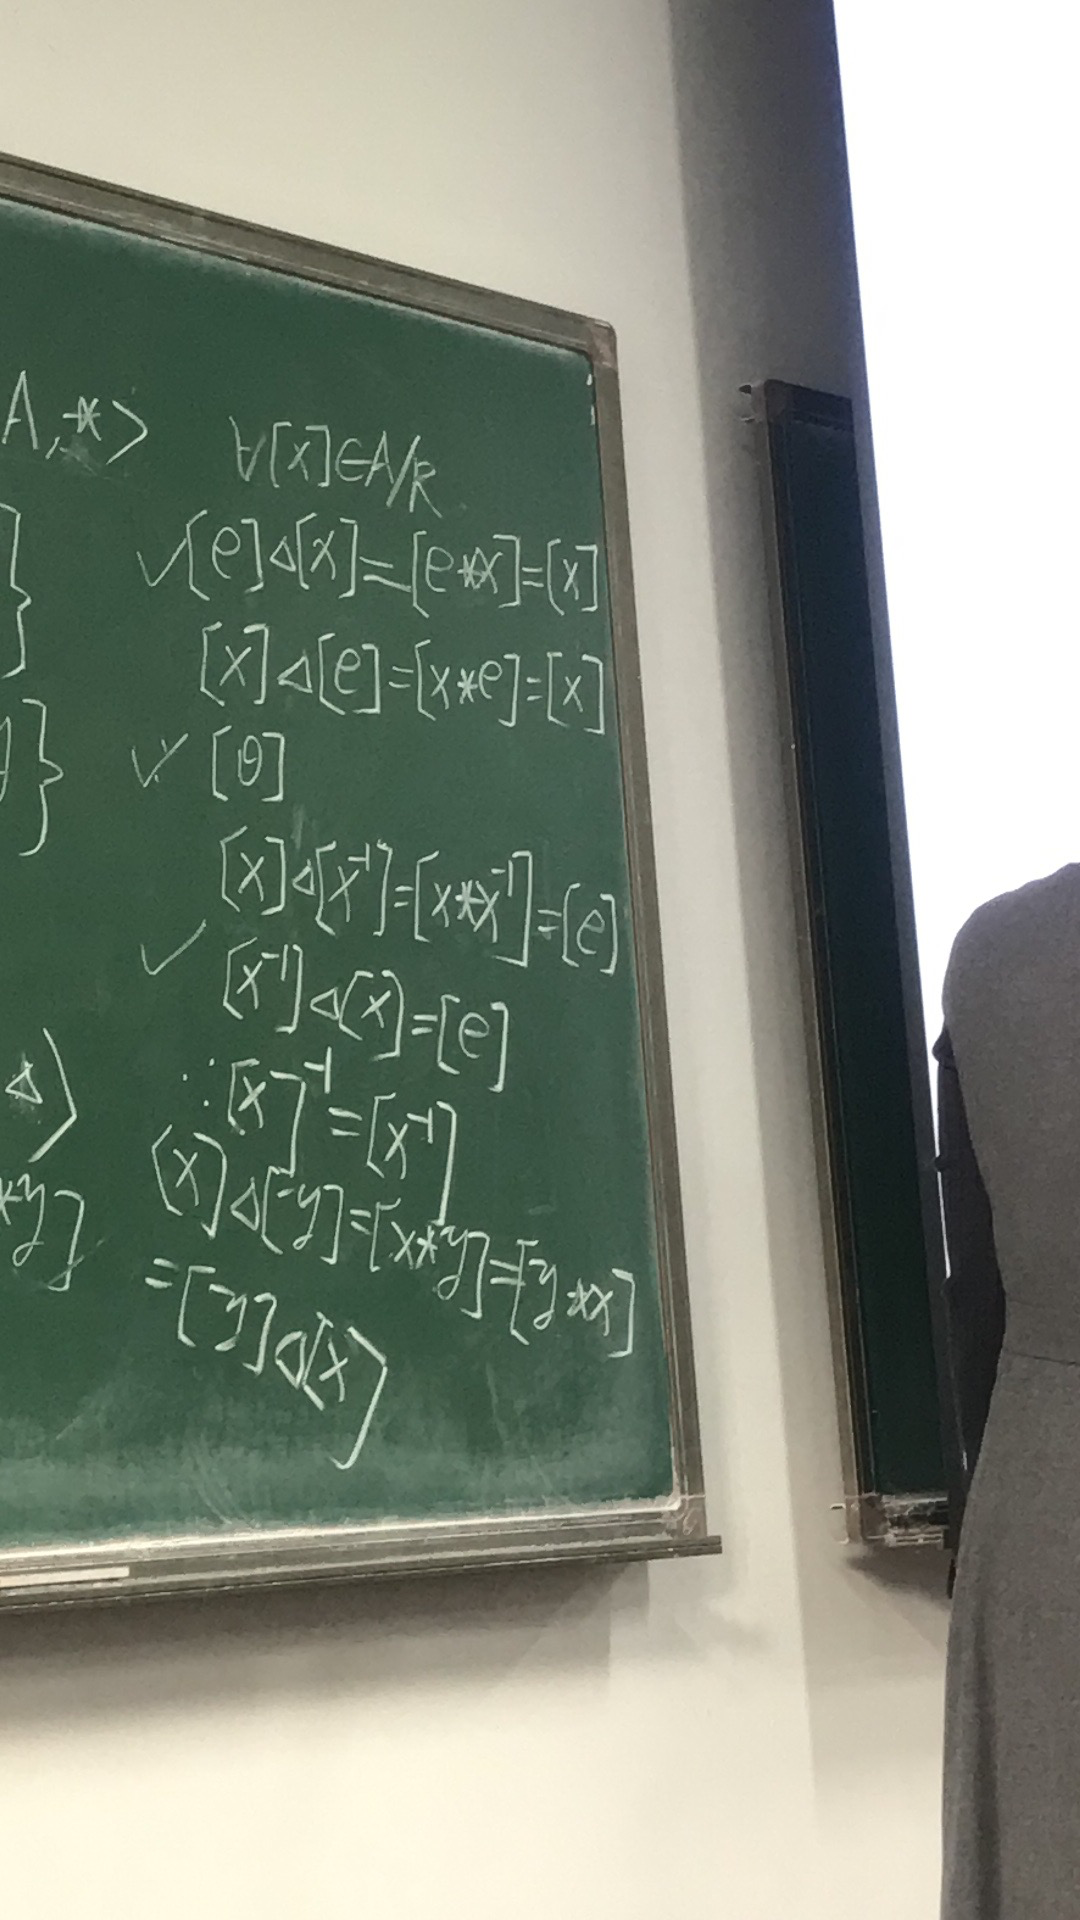 A,*> ∀[x]∈A/R
} ✓[e]△[x]=[e*x]=[x]
[x]△[e]=[x*e]=[x]
θ} ✓ [θ]
[x]△[x⁻¹]=[x*x⁻¹]=[e]
✓ [x⁻¹]△[x]=[e]
△> ∴[x]⁻¹=[x⁻¹]
*y] [x]△[y]=[x*y]=[y*x]
=[y]△[x]